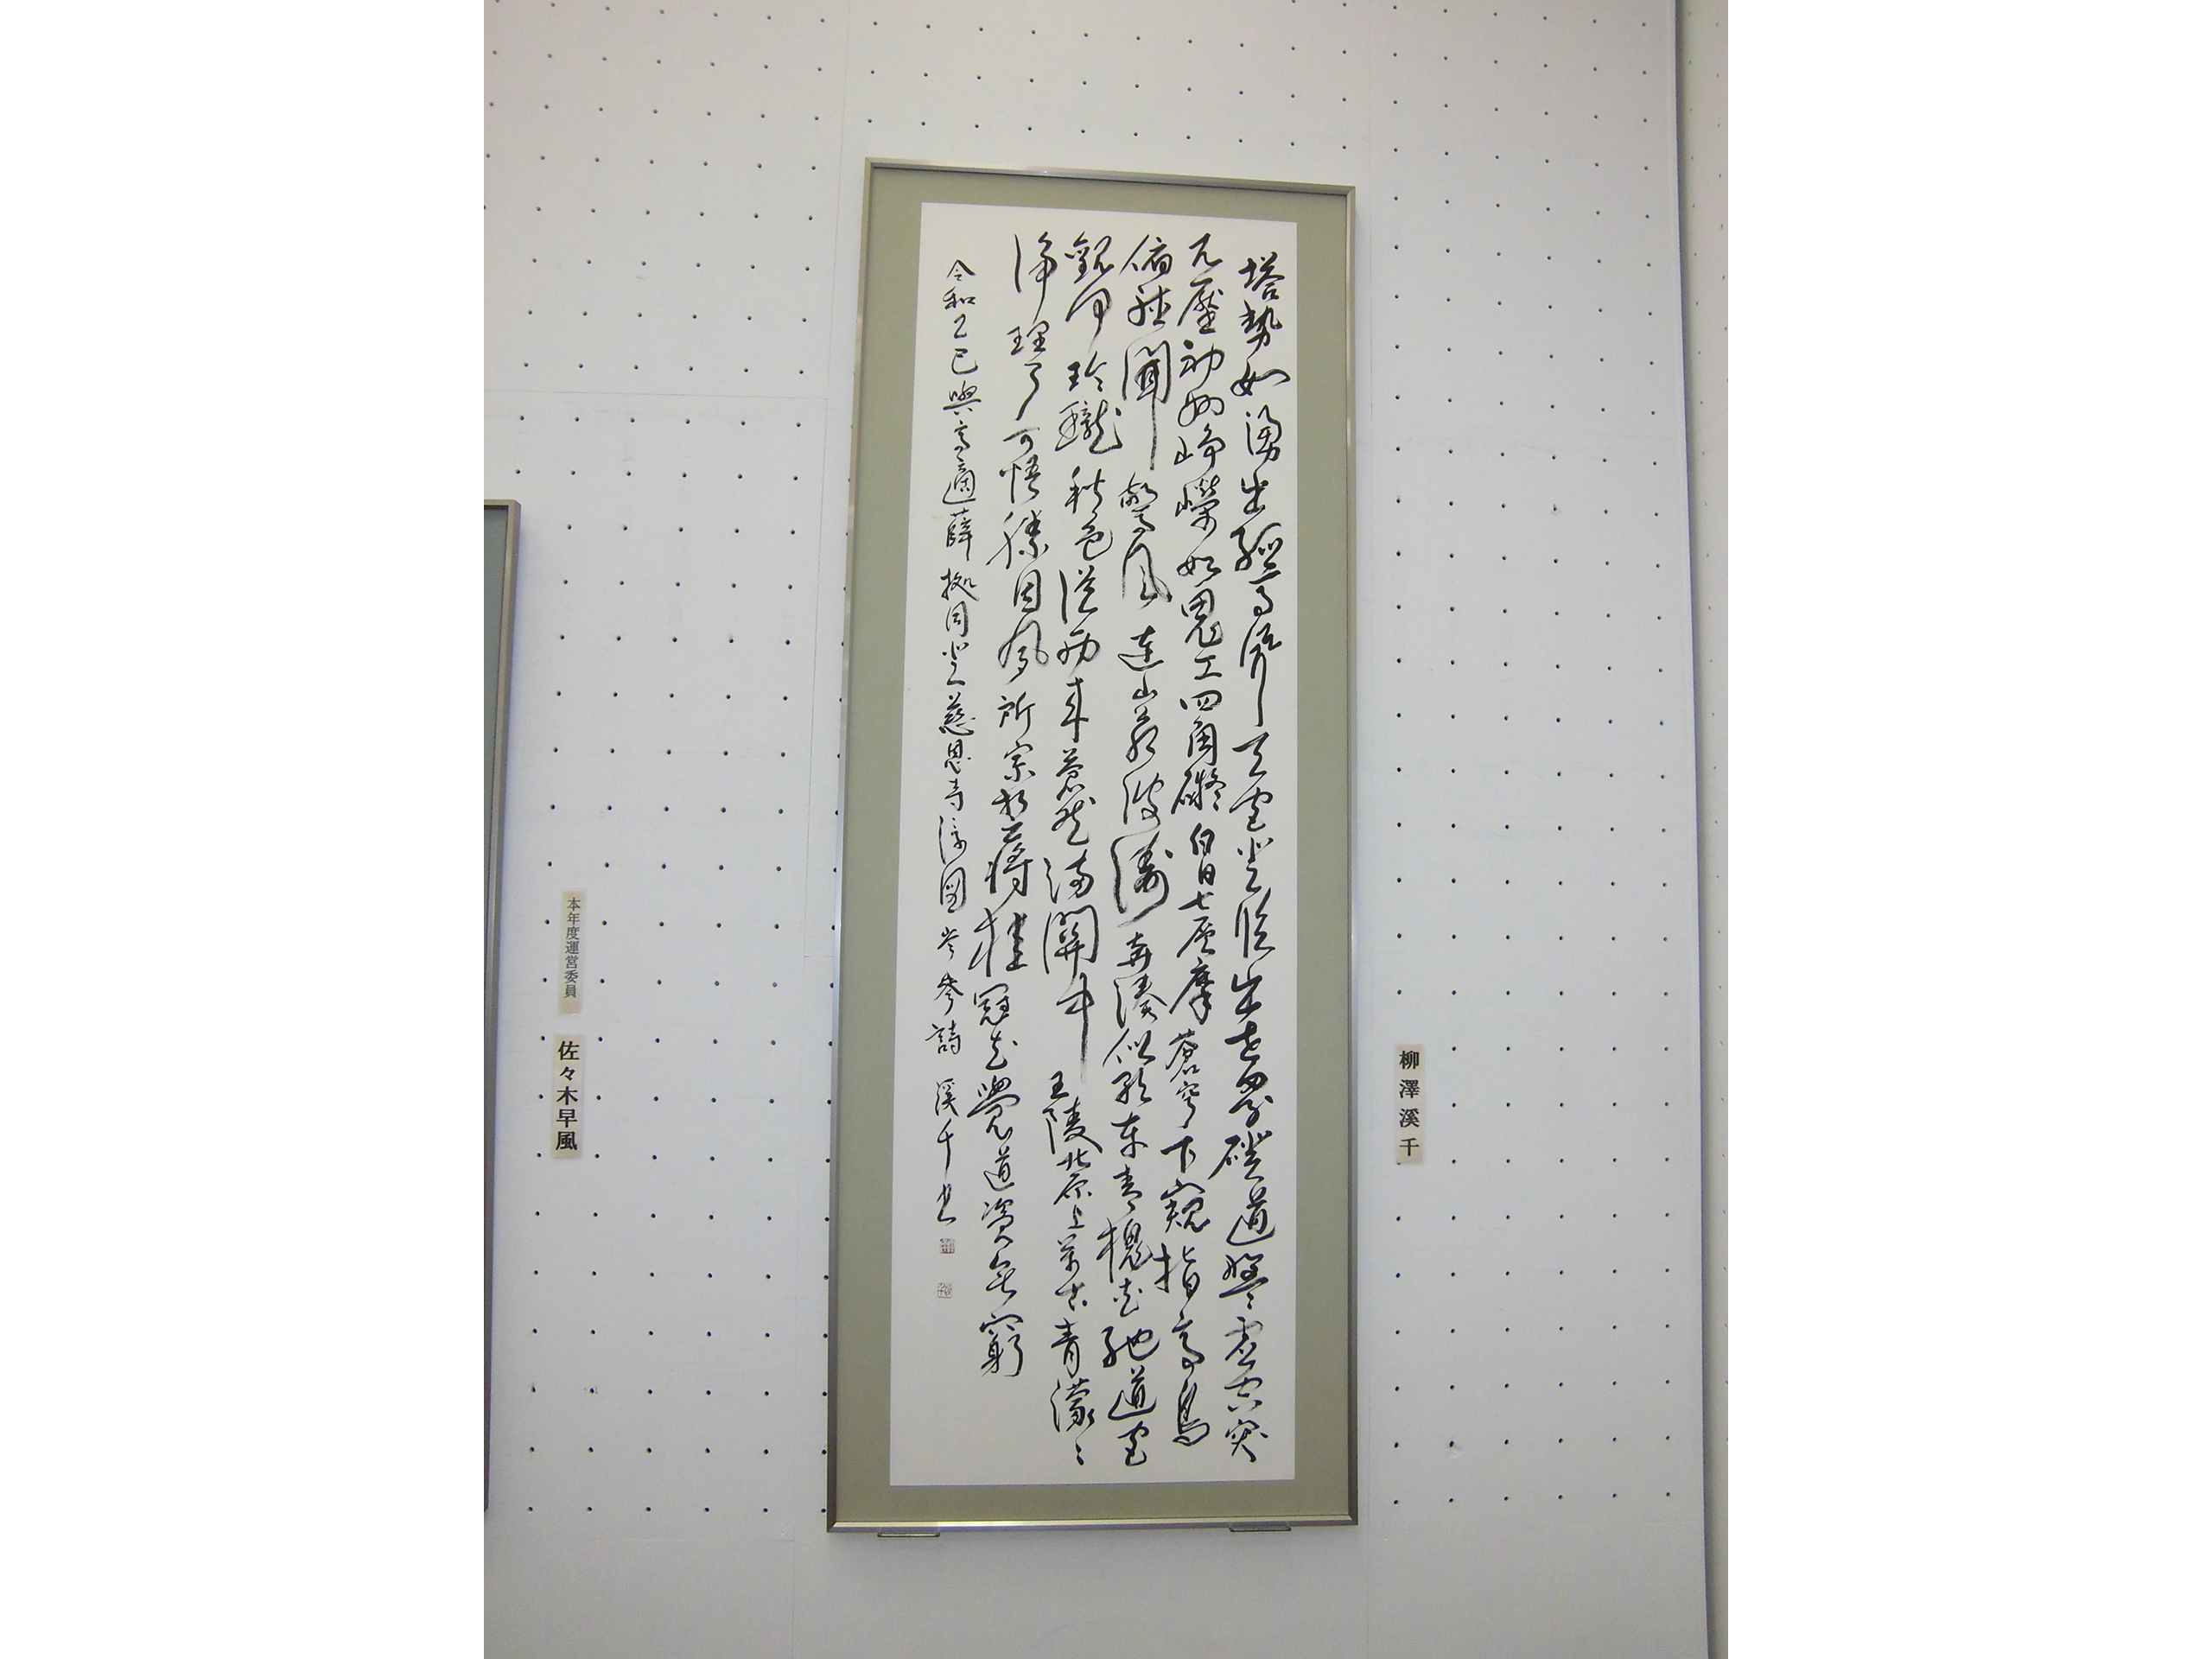 柳澤溪千
塔勢如湧出孤高聳天宮登臨出世界磴道盤虛空突
兀壓神州崢嶸如鬼工四角礙白日七層摩蒼穹下窺指高鳥
俯聽聞驚風連山若波濤奔湊似朝東青槐夾馳道宮
觀何玲瓏秋色從西來蒼然滿關中五陵北原上萬古青濛々
淨理了可悟勝因夙所宗誓將挂冠去覺道資無窮
令和乙巳與高適薛拠同登慈恩寺浮圖岑參詩 溪千書
本年度運営委員 佐々木早風